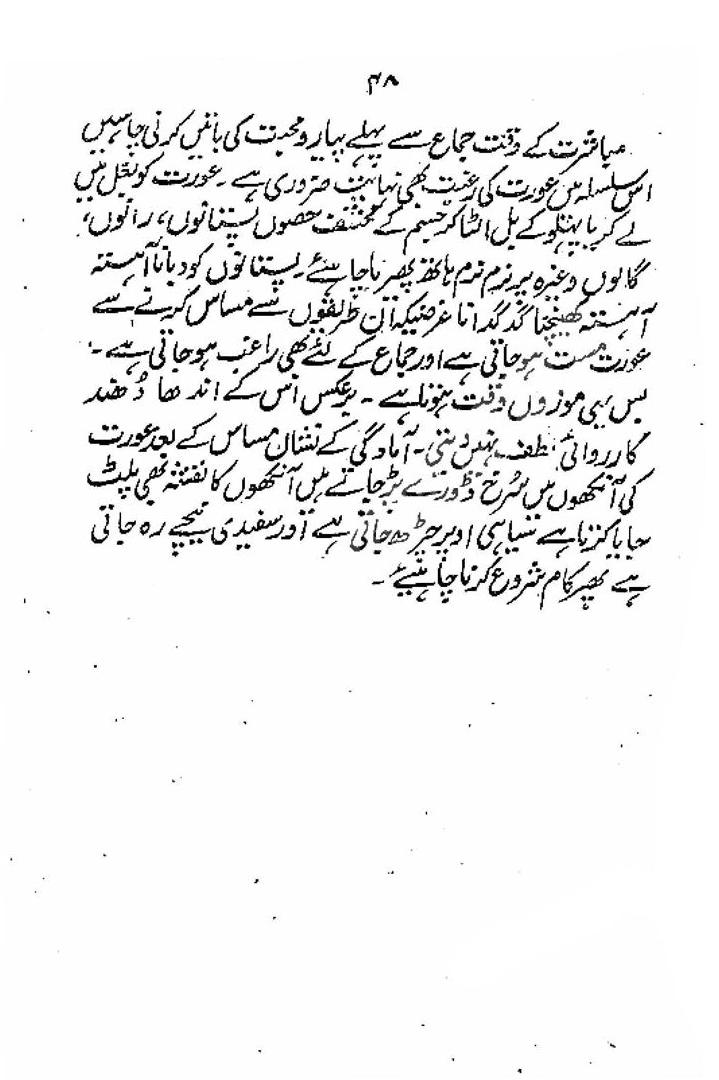 ۴۸
مباشرت کے وقت جماع سے پہلے پیار و محبت کی باتیں کرنی چاہییں
اس سلسلہ میں عورت کی رغبت بھی نہایت ضروری ہے۔ عورت کو بغل میں
لے کر یا پہلو کے بل لٹا کر جسم کے مختلف حصوں پستانوں، رانوں،
گالوں وغیرہ پر نرم نرم ہاتھ پھیرنا چاہئے۔ پستانوں کو دبانا آہستہ
آہستہ کھینچنا گدگدانا غرضیکہ ان طریقوں سے مساس کرنے سے
عورت مست ہو جاتی ہے اور جماع کے لئے بھی راغب ہو جاتی ہے۔
بس یہی موزوں وقت ہوتا ہے۔ برعکس اس کے اندھا دُھند
کارروائی لطف نہیں دیتی۔ آمادگی کے نشان مساس کے بعد عورت
کی آنکھوں میں سُرخ ڈورے پڑ جاتے ہیں آنکھوں کا نقشہ بھی پلٹ
جایا کرتا ہے سیاہی اوپر چڑھ جاتی ہے اور سفیدی نیچے رہ جاتی
ہے پھر کام شروع کرنا چاہیئے۔